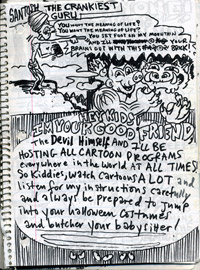 SANTOSH THE CRANKIEST
GURU
YOU WANT THE MEANING OF LIFE?
YOU WANT THE MEANING OF LIFE?
YOU SET FOOT ON MY MOUNTAIN
AND I'LL YOUR
BRAINS OUT WITH THIS BRICK!
HEY KIDS!
I'M YOUR GOOD FRIEND
The Devil Himself AND I'LL BE
HOSTING ALL CARTOON PROGRAMS
everywhere in the world AT ALL TIMES
So Kiddies, watch cartoons A LOT and
listen for my instructions carefully
and always be prepared to jump
into your halloween costumes
and butcher your babysitter!